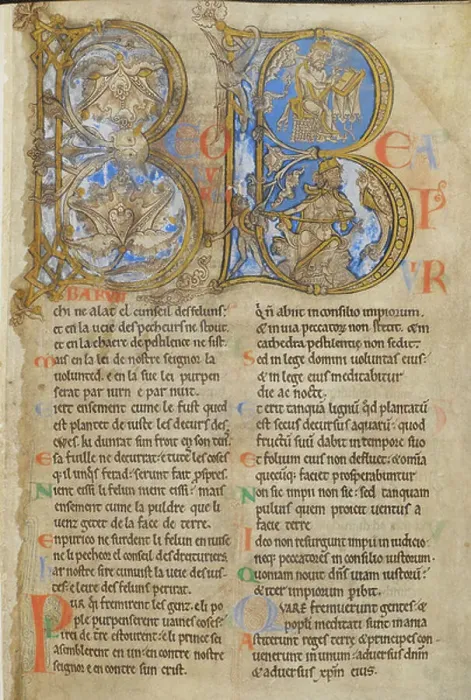 B
BARVN
chi ne alat el cunseil des feluns:
et en la veie des pecheurs ne stout.
et en la chaere de pestilence ne sist.
Mais en la lei de nostre seignor la
volunted. e en la sue lei purpen
serat par iurn e par nuit.
iert ensement cume le fust qued
est plantet de iuste les decurs des
ewes. ki dunrat sun froit en son tens.
sa fuille ne decurrat: e tute les coses
q; il unqs ferad: serunt fait pspres.
Nient eissi li felun nient eissi: mais
ensement cume la puldre que li
venz getet de la face de terre.
Enpurico ne surdent li felun en iuise
ne li pecheor el conseil des dreituriers.
kar nostre sire cunuist la veie des ius
tes: e leire des feluns perirat.
Pur qi fremirent les genz. e li po
ple purpenserent vaines coses?
li rei de tre estourent: e li prince sei
asemblerent en un: en contre nostre
seignor e en contre sun crist.
B
EA
T
VR
qi n abiit in consilio impiorum.
& in uia peccatorũ non stetit. & in
cathedra pestilentie non sedit.
Sed in lege domini uoluntas eius:
& in lege eius meditabitur
die ac nocte.
Et erit tanquã lignũ qd plantatũ
est secus decursus aquarũ: quod
fructũ suũ dabit in tempore suo
Et folium eius non defluet: & omia
quecũq; faciet prosperabuntur
Non sic impii non sic: sed tanquam
puluis quem proicit uentus a
facie terre
Ideo non resurgunt impii in iudicio:
neq; peccatores in consilio iustorum.
Quoniam nouit dñs uiam iustorũ:
& iter impiorum pibit.
QVARE fremuerunt gentes: &
populi meditati sunt inania
Astiterunt reges terre & principes con
uenerunt in unum: aduersus dñm
& aduersus xpm eius.